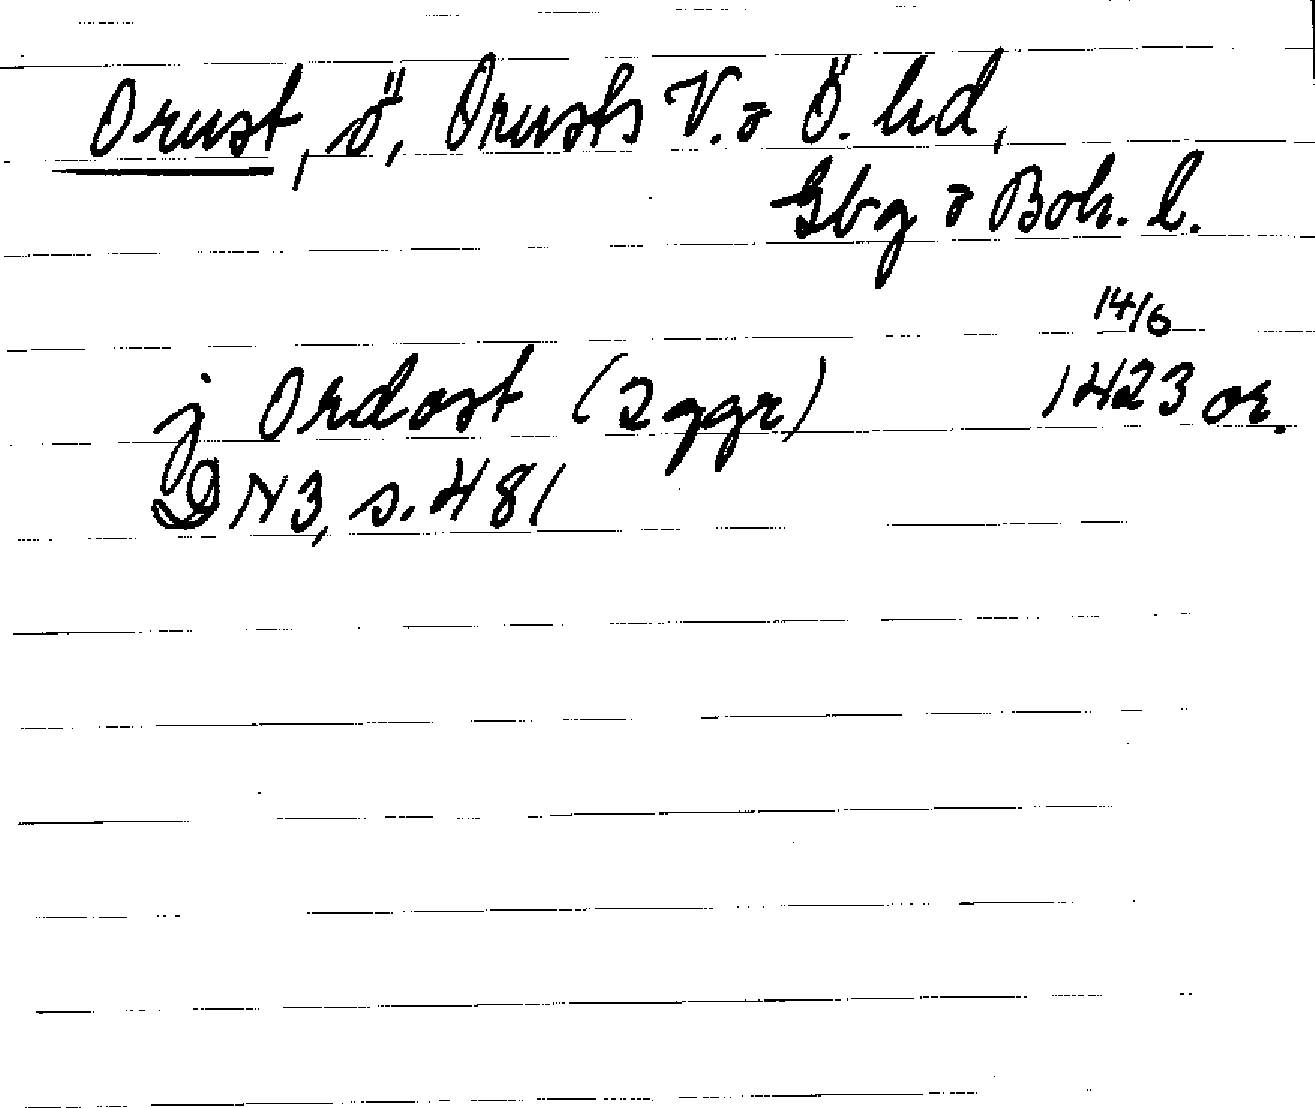 Orust, ö, Orusts V. o Ö. hd,
Gbg o Boh. l.
14/6
j Ordost (2 ggr) 1423 or.
DN 3, s. 481